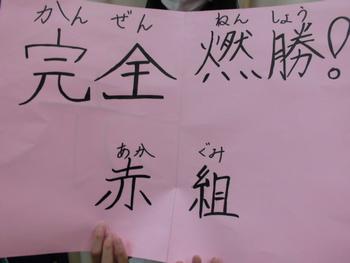 かん ぜん ねん しょう
完全燃勝!
あか ぐみ
赤組